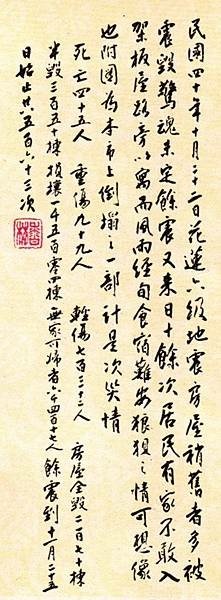 民國四十年十月二十二日花蓮六級地震房屋稍舊者多被
震毀驚魂未定餘震又来日十餘次居民有家不敢入
架板屋路旁以寓而風雨經旬食宿難安狼狽之情可想像
也附圖為本市上倒塌之一部計是次災情
死亡四十五人 重傷九十九人 輕傷七百三十二人 房屋全毀二百七十棟
半毀三百五十棟損壞一千五百零四棟無家可歸者六千四百十七人餘震到十一月二十五
日始止共五百六十三次